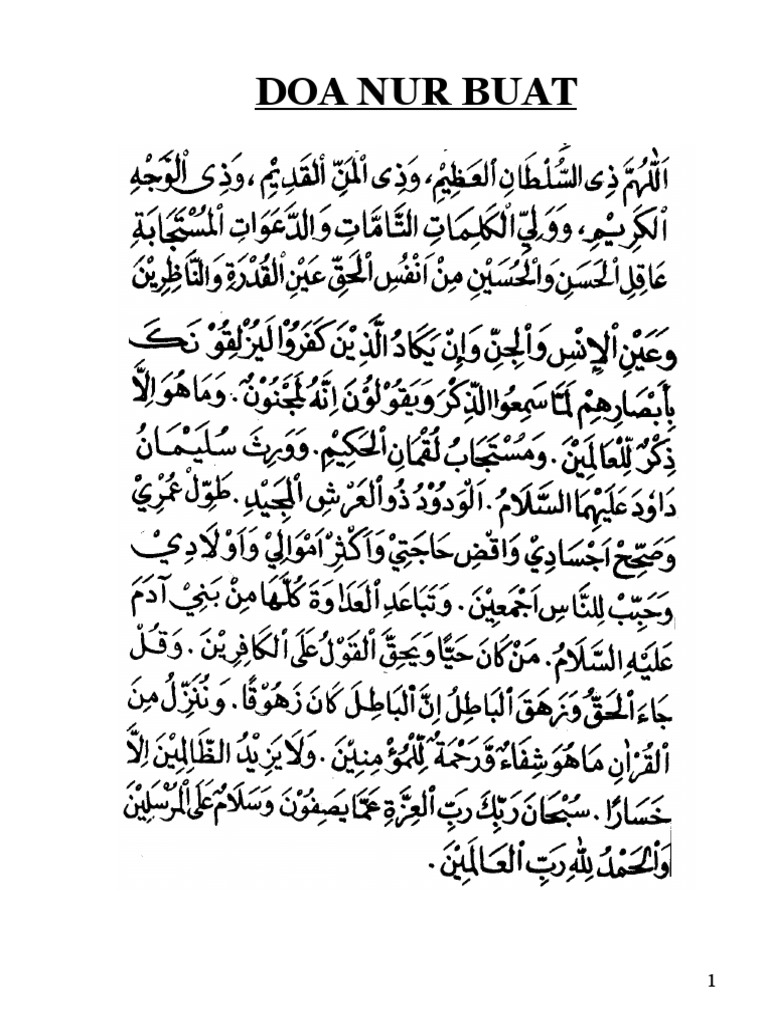 DOA NUR BUAT
اَللّٰهُمَّ ذِى السُّلْطَانِ الْعَظِيْمِ، وَذِى الْمَنِّ الْقَدِيْمِ، وَذِى الْوَجْهِ
الْكَرِيْمِ، وَوَلِيِّ الْكَلِمَاتِ التَّامَّاتِ وَالدَّعَوَاتِ الْمُسْتَجَابَةِ
عَاقِلِ الْحَسَنِ وَالْحُسَيْنِ مِنْ اَنْفُسِ الْحَقِّ عَيْنِ الْقُدْرَةِ وَالنَّاظِرِيْنَ
وَعَيْنِ الْاِنْسِ وَالْجِنِّ وَاِنْ يَكَادُ الَّذِيْنَ كَفَرُوْا لَيُزْلِقُوْنَكَ
بِأَبْصَارِهِمْ لَمَّا سَمِعُوا الذِّكْرَ وَيَقُوْلُوْنَ اِنَّهُ لَمَجْنُوْنٌ. وَمَا هُوَ اِلَّا
ذِكْرٌ لِّلْعَالَمِيْنَ. وَمُسْتَجَابُ لُقْمَانِ الْحَكِيْمِ. وَوَرِثَ سُلَيْمَانُ
دَاوٗدَ عَلَيْهِمَا السَّلَامُ. اَلْوَدُوْدُ ذُو الْعَرْشِ الْمَجِيْدِ. طَوِّلْ عُمْرِيْ
وَصَحِّحْ اَجْسَادِيْ وَاقْضِ حَاجَتِيْ وَاَكْثِرْ اَمْوَالِيْ وَاَوْلَادِيْ
وَحَبِّبْ لِلنَّاسِ اَجْمَعِيْنَ. وَتَبَاعَدِ الْعَدَاوَةَ كُلَّهَا مِنْ بَنِيْ آدَمَ
عَلَيْهِ السَّلَامُ. مَنْ كَانَ حَيًّا وَيَحِقَّ الْقَوْلُ عَلَى الْكَافِرِيْنَ. وَقُلْ
جَاءَ الْحَقُّ وَزَهَقَ الْبَاطِلُ اِنَّ الْبَاطِلَ كَانَ زَهُوْقًا. وَنُنَزِّلُ مِنَ
الْقُرْاٰنِ مَا هُوَ شِفَاءٌ وَّرَحْمَةٌ لِّلْمُؤْمِنِيْنَ. وَلَا يَزِيْدُ الظَّالِمِيْنَ اِلَّا
خَسَارًا. سُبْحَانَ رَبِّكَ رَبِّ الْعِزَّةِ عَمَّا يَصِفُوْنَ وَسَلَامٌ عَلَى الْمُرْسَلِيْنَ
وَالْحَمْدُ لِلّٰهِ رَبِّ الْعَالَمِيْنَ.
1